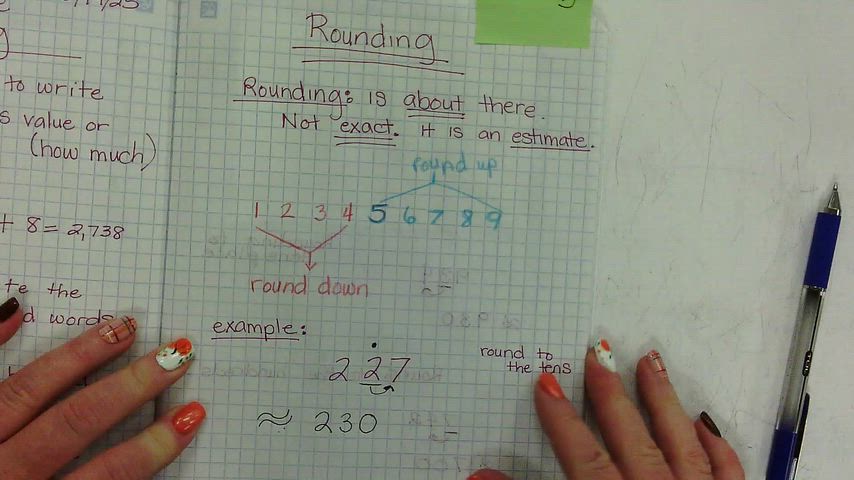 to write
s value or
(how much)
+ 8 = 2,738
te the
d words
Rounding
Rounding: is about there.
Not exact. It is an estimate.
round up
1 2 3 4 5 6 7 8 9
round down
example:
227
round to
the tens
≈ 230